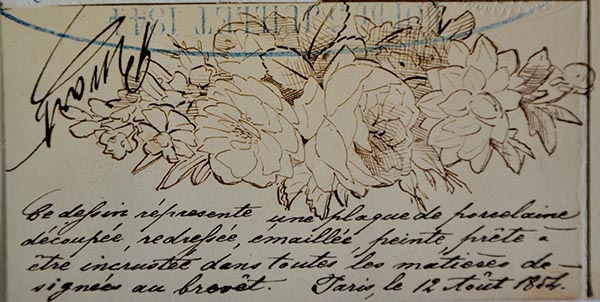 Ce dessin répresente une plaque de porcelaine
découpée, redressée, émaillée, peinte prête à
être incrustée dans toutes les matières dé-
signées au brevet. Paris, le 12 Août 1854.